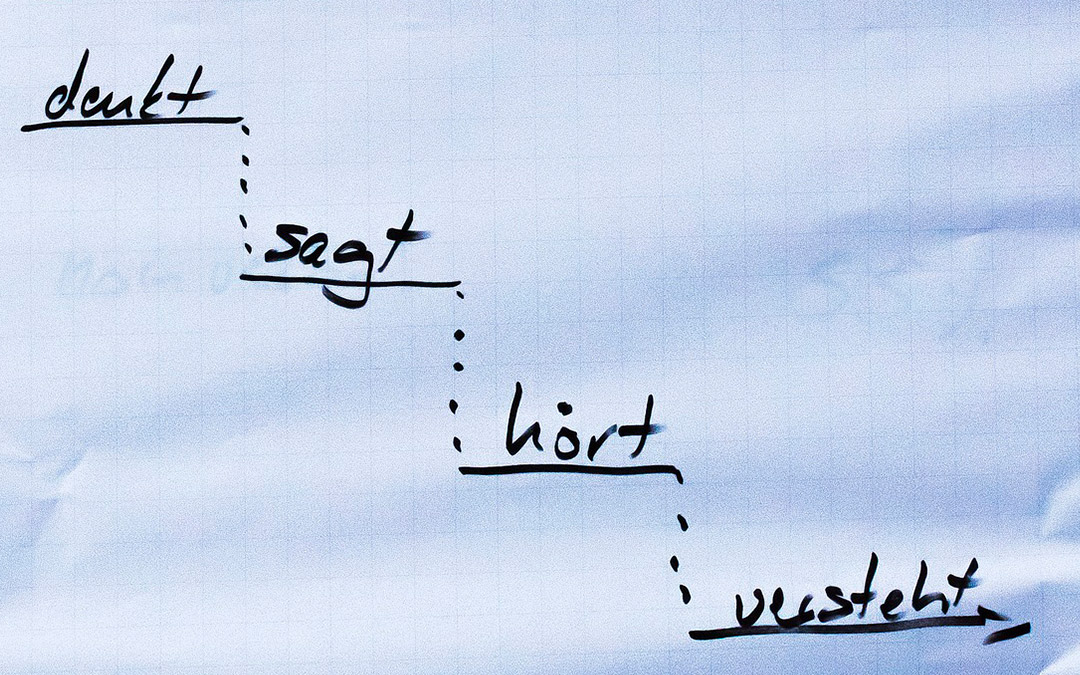 denkt
sagt
hört
versteht